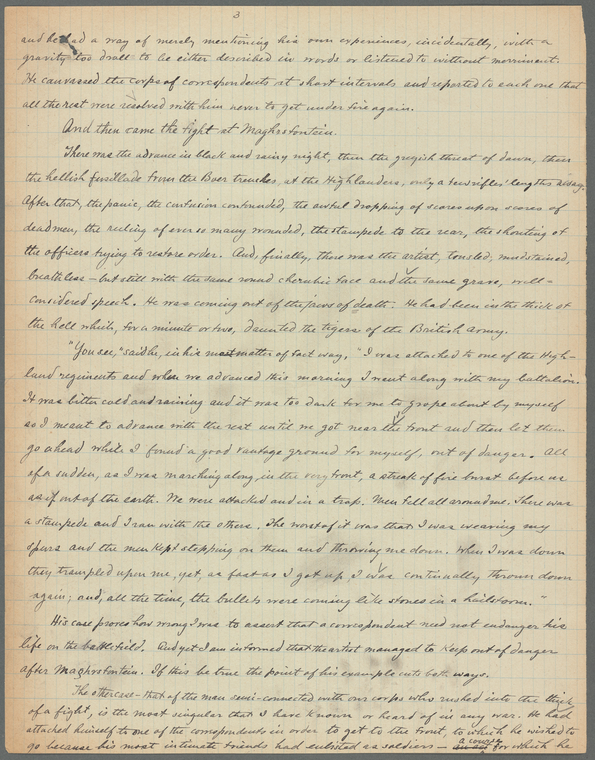 3
and he had a way of merely mentioning his own experiences, incidentally, with a
gravity too droll to be either described in words or listened to without merriment.
He canvassed the corps of correspondents at short intervals and reported to each one that
all the rest were resolved with him never to get under fire again.
And then came the fight at Maghrsfontein.
There was the advance in black and rainy night, then the greyish threat of dawn, then
the hellish fusillade from the Boer trenches, at the Highlanders, only a few rifles' lengths away.
After that, the panic, the confusion confounded, the awful dropping of scores upon scores of
dead men, the reeling of ever so many wounded, the stampede to the rear, the shouting of
the officers trying to restore order. And, finally, there was the artist, tousled, mud stained,
breathless – but still with the same round cherubic face and the same grave, well-
considered speech. He was coming out of the jaws of death. He had been in the thick of
the hell which, for a minute or two, daunted the tigers of the British army.
"You see," said he, in his most matter of fact way, "I was attached to one of the High-
land regiments and when we advanced this morning I went along with my battalion.
It was bitter cold and raining and it was too dark for me to grope about by myself
so I meant to advance with the rest until we got near the front and then let them
go ahead while I found a good vantage ground for myself, out of danger. All
of a sudden, as I was marching along in the very front, a streak of fire burst before us
as if out of the earth. We were attacked and in a trap. Men fell all around me. There was
a stampede and I ran with the others. The worst of it was that I was wearing my
spurs and the men kept stepping on them and throwing me down. When I was down
they trampled upon me, yet, as fast as I got up, I was continually thrown down
again; and, all the time, the bullets were coming like stones in a hailstorm."
His case proves how wrong I was to assert that a correspondent need not endanger his
life on the battlefield. And yet I am informed that the artist managed to keep out of danger
after Maghrsfontein. If this be true the point of his example cuts both ways.
The other case – that of the man semi-connected with our corps who rushed into the thick
of a fight, is the most singular that I have known or heard of in any war. He had
attached himself to one of the correspondents in order to get to the front, to which he wished to
go because his most intimate friends had enlisted as soldiers – a course for which he